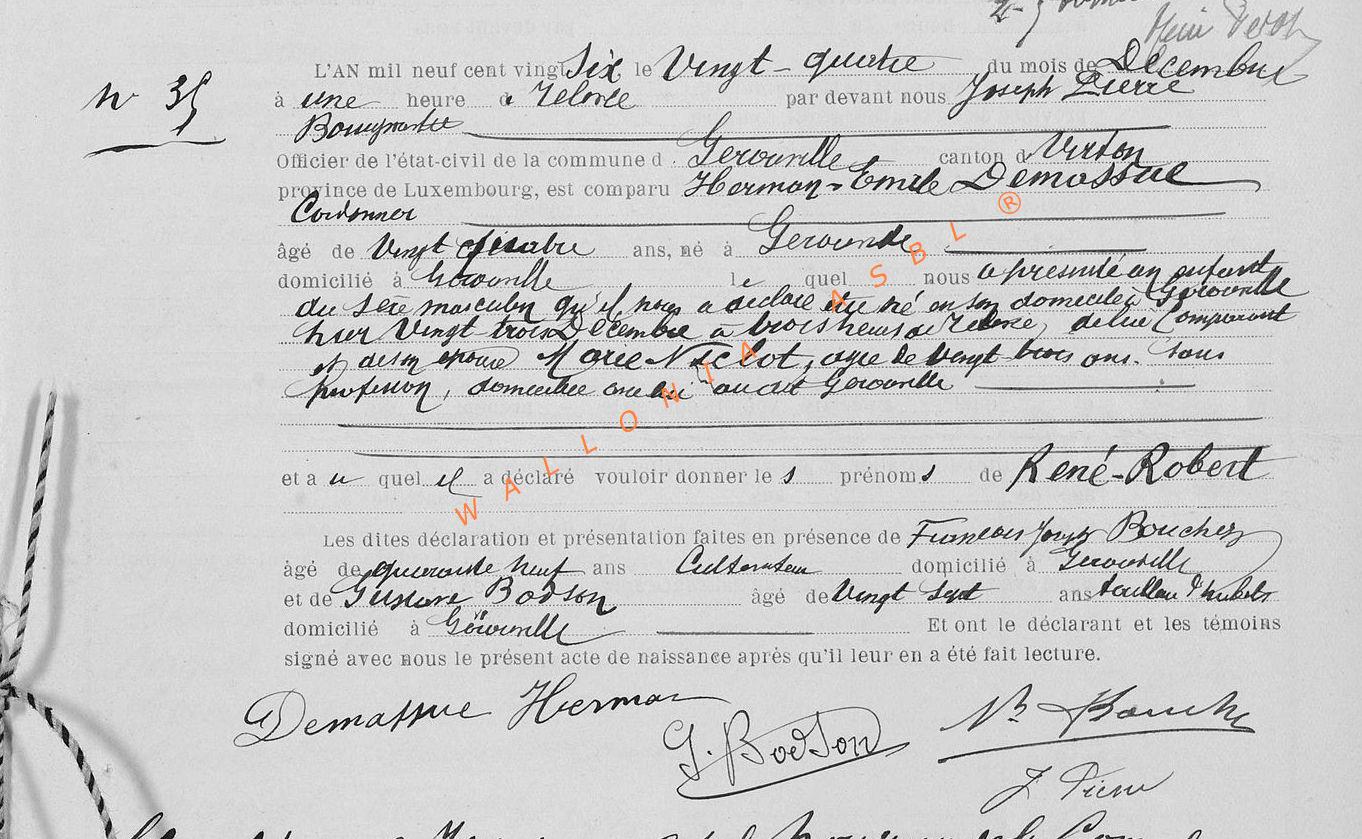 N° 35
L'AN mil neuf cent vingt Six le Vingt-quatre du mois de Décembre
à une heure de relevée par devant nous Joseph Pierre
Bourgmestre
Officier de l'état-civil de la commune d Gérouville canton d Virton
province de Luxembourg, est comparu Herman-Emile Demassue
Cordonnier
âgé de Vingt quatre ans, né à Gérouville
domicilié à Gérouville le quel nous a présenté un enfant
du sexe masculin qu'il nous a déclaré être né en son domicile à Gérouville
hier Vingt trois Décembre à trois heures de relevée, de lui Comparant
et de son épouse Marie Niclot, âgée de vingt trois ans. Sans
profession, domiciliée avec lui audit Gérouville
et a u quel il a déclaré vouloir donner le s prénom s de René-Robert
Les dites déclaration et présentation faites en présence de François Joseph Bouchez
âgé de quarante neuf ans Cultivateur domicilié à Gérouville
et de Gustave Bodson âgé de Vingt Sept ans tailleur d'habits
domicilié à Gérouville Et ont le déclarant et les témoins
signé avec nous le présent acte de naissance après qu'il leur en a été fait lecture.
Demassue Herman
G. Bodson
J. Pierre
WALLONIA ASBL ®